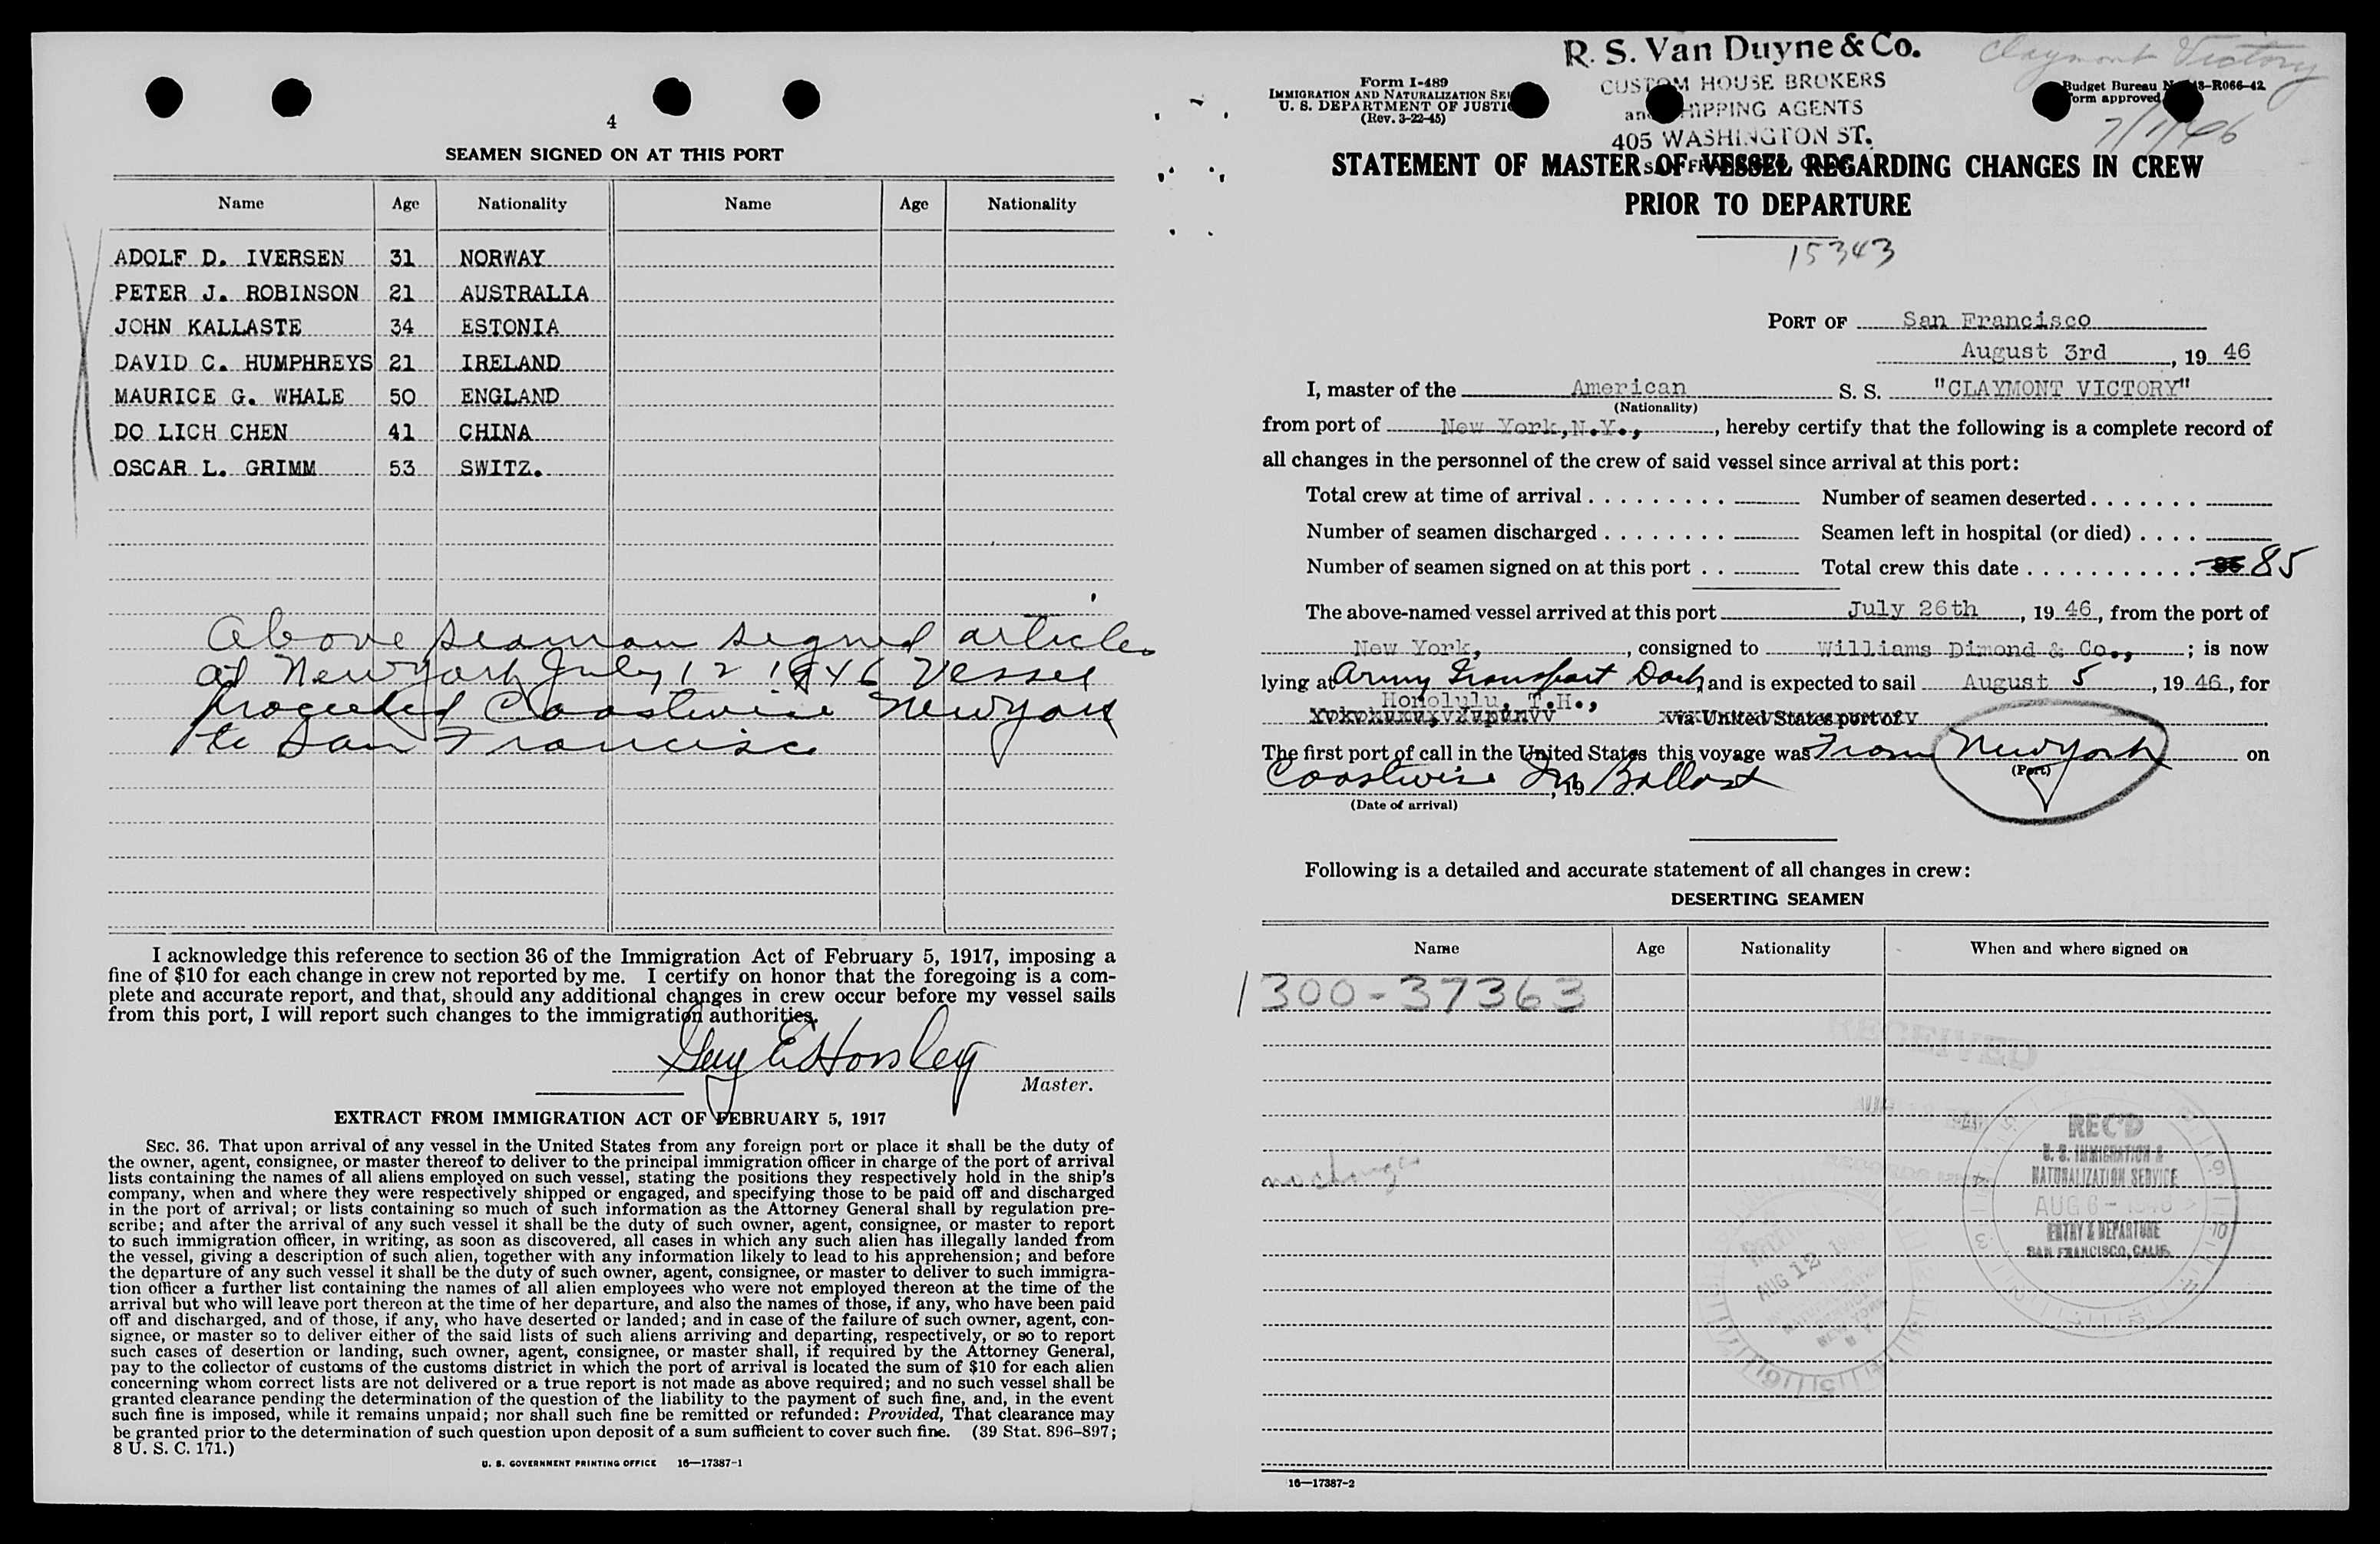 4
SEAMEN SIGNED ON AT THIS PORT
Name Age Nationality Name Age Nationality
ADOLF D. IVERSEN 31 NORWAY
PETER J. ROBINSON 21 AUSTRALIA
JOHN KALLASTE 34 ESTONIA
DAVID C. HUMPHREYS 21 IRELAND
MAURICE G. WHALE 50 ENGLAND
DO LICH CHEN 41 CHINA
OSCAR L. GRIMM 53 SWITZ.
Above seaman signed articles
at New York July 12 1946 Vessel
proceeded Coastwise New York
to San Francisco
I acknowledge this reference to section 36 of the Immigration Act of February 5, 1917, imposing a
fine of $10 for each change in crew not reported by me. I certify on honor that the foregoing is a com-
plete and accurate report, and that, should any additional changes in crew occur before my vessel sails
from this port, I will report such changes to the immigration authorities.
Master.
EXTRACT FROM IMMIGRATION ACT OF FEBRUARY 5, 1917
SEC. 36. That upon arrival of any vessel in the United States from any foreign port or place it shall be the duty of
the owner, agent, consignee, or master thereof to deliver to the principal immigration officer in charge of the port of arrival
lists containing the names of all aliens employed on such vessel, stating the positions they respectively hold in the ship's
company, when and where they were respectively shipped or engaged, and specifying those to be paid off and discharged
in the port of arrival; or lists containing so much of such information as the Attorney General shall by regulation pre-
scribe; and after the arrival of any such vessel it shall be the duty of such owner, agent, consignee, or master to report
to such immigration officer, in writing, as soon as discovered, all cases in which any such alien has illegally landed from
the vessel, giving a description of such alien, together with any information likely to lead to his apprehension; and before
the departure of any such vessel it shall be the duty of such owner, agent, consignee, or master to deliver to such immigra-
tion officer a further list containing the names of all alien employees who were not employed thereon at the time of the
arrival but who will leave port thereon at the time of her departure, and also the names of those, if any, who have been paid
off and discharged, and of those, if any, who have deserted or landed; and in case of the failure of such owner, agent, con-
signee, or master so to deliver either of the said lists of such aliens arriving and departing, respectively, or so to report
such cases of desertion or landing, such owner, agent, consignee, or master shall, if required by the Attorney General,
pay to the collector of customs of the customs district in which the port of arrival is located the sum of $10 for each alien
concerning whom correct lists are not delivered or a true report is not made as above required; and no such vessel shall be
granted clearance pending the determination of the question of the liability to the payment of such fine, and, in the event
such fine is imposed, while it remains unpaid; nor shall such fine be remitted or refunded: Provided, That clearance may
be granted prior to the determination of such question upon deposit of a sum sufficient to cover such fine. (39 Stat. 896-897;
8 U. S. C. 171.)
U. S. GOVERNMENT PRINTING OFFICE 16—17387-1
R. S. Van Duyne & Co.
CUSTOM HOUSE BROKERS
SHIPPING AGENTS
405 WASHINGTON ST.
Claymont Victory
7/1/46
Form I-489
IMMIGRATION AND NATURALIZATION
U. S. DEPARTMENT OF
(Rev. 3-22-45)
Budget Bureau -R066-42
Form approved
STATEMENT OF MASTER OF VESSEL REGARDING CHANGES IN CREW
PRIOR TO DEPARTURE
15343
PORT OF San Francisco
August 3rd, 19 46
I, master of the American S. S. "CLAYMONT VICTORY"
(Nationality)
from port of New York, N.Y., hereby certify that the following is a complete record of
all changes in the personnel of the crew of said vessel since arrival at this port:
Total crew at time of arrival Number of seamen deserted
Number of seamen discharged Seamen left in hospital (or died)
Number of seamen signed on at this port Total crew this date 85
The above-named vessel arrived at this port July 26th, 19 46, from the port of
New York, consigned to Williams Dimond & Co., ; is now
lying at Army Transport Dock, and is expected to sail August 5, 19 46, for
Honolulu, T.H.,
via United States port of
The first port of call in the United States this voyage was From New York on
(Port)
Coastwise In Ballast , 19
(Date of arrival)
Following is a detailed and accurate statement of all changes in crew:
DESERTING SEAMEN
Name Age Nationality When and where signed on
1300-37363
RECEIVED
no changes
REC'D
U. S. IMMIGRATION &
NATURALIZATION SERVICE
AUG 6 - 1946
ENTRY & DEPARTURE
SAN FRANCISCO, CALIF.
AUG 12
16—17387-2